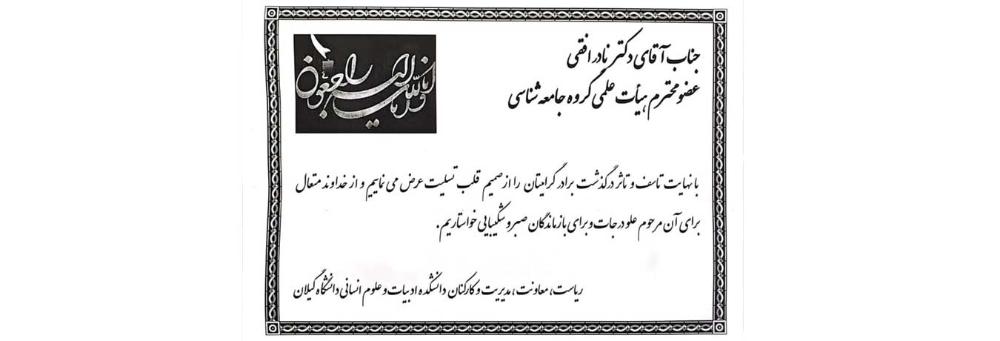 جناب آقای دکتر نادر افقی
عضو محترم هیأت علمی گروه جامعه شناسی
انا لله و انا الیه راجعون
با نهایت تاسف و تاثر درگذشت برادر گرامیتان را از صمیم قلب تسلیت عرض می نماییم و از خداوند متعال
برای آن مرحوم علو درجات و برای بازماندگان صبر و شکیبایی خواستاریم.
ریاست، معاونت، مدیریت و کارکنان دانشکده ادبیات و علوم انسانی دانشگاه گیلان